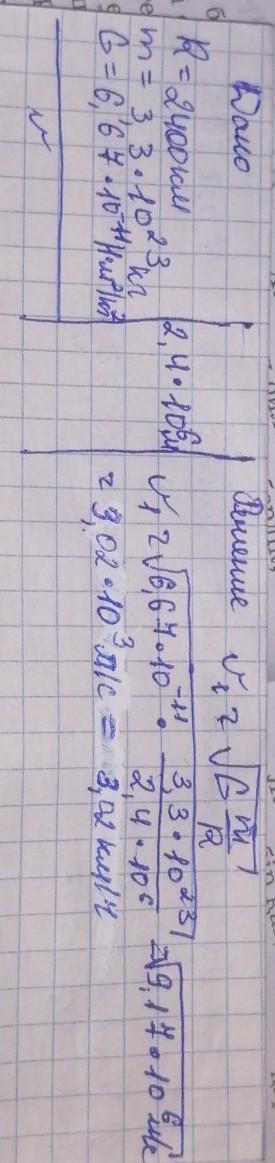 Дано
R = 2400км
m = 3,3·10²³ кг
G = 6,67·10⁻¹¹ Н·м²/кг²
v
2,4·10⁶ м
Решение v₁ = √G m/R
v₁ = √6,67·10⁻¹¹ · 3,3·10²³/2,4·10⁶ = √9,17·10⁶ м/с
= 3,02·10³ м/с = 3,02 км/ч